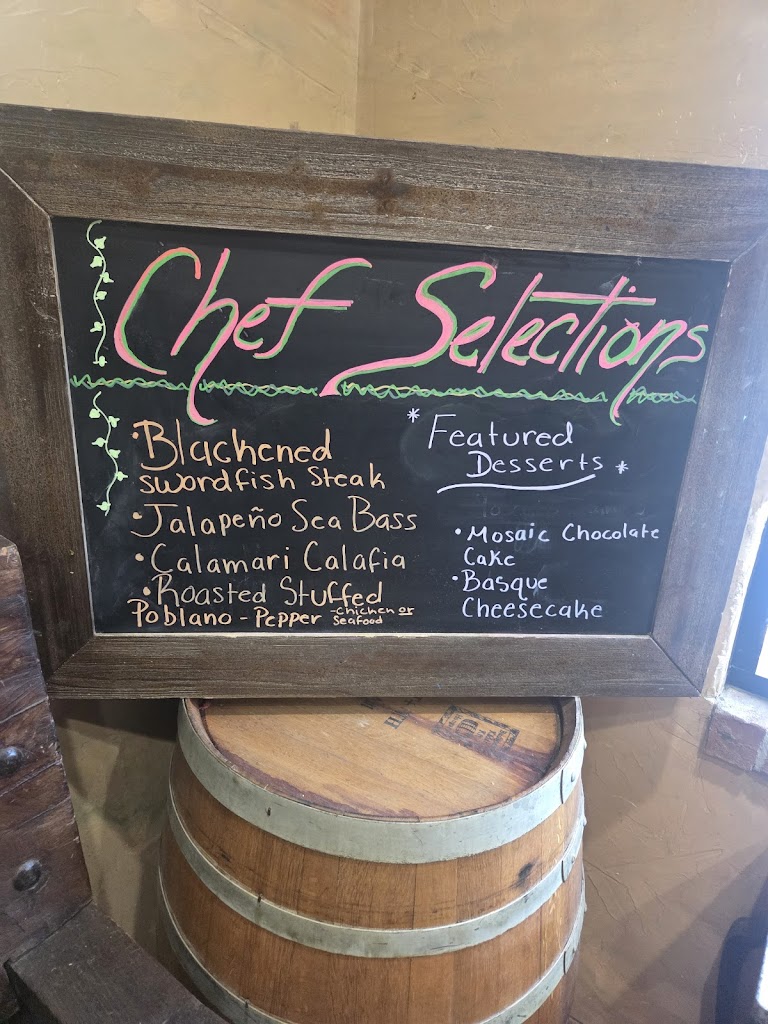 Chef Selections
• Blackened
swordfish Steak
• Jalapeño Sea Bass
• Calamari Calafia
• Roasted Stuffed
Poblano - Pepper - Chicken or
Seafood
* Featured
Desserts *
• Mosaic Chocolate
Cake
• Basque
Cheesecake